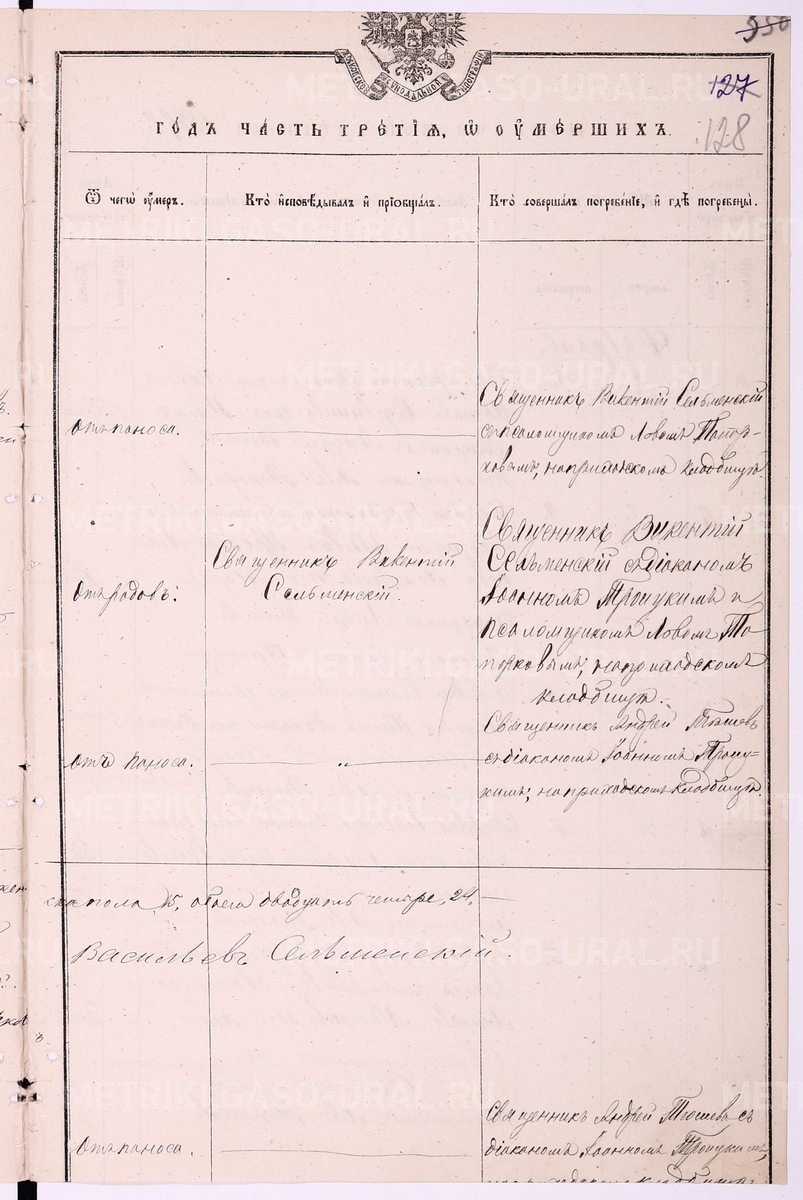 МОСКОВСКОЙ СѴНОДАЛЬНОЙ ТИПОГРАФІИ
127
128
ГО́ДЪ ЧА́СТЬ ТРЕ́ТІЯ, Ѿ ОУ҆МЕ́РШИХЪ.
Ѿ чегѡ̀ оу҆́меръ.
Кто̀ и҆сповѣ́дывалъ и҆ прїѡбща́лъ.
Кто̀ соверша́лъ погребе́нїе, и҆ гдѣ̀ погребены̀.
Отъ поноса.
Священникъ Викентій Сельменскій
съ псаломщикомъ Львомъ Топор-
ковымъ; на приходскомъ кладбищѣ
Отъ родовъ.
Священникъ Викентій
Сельменскій.
Священникъ Викентій
Сельменскій съ діакономъ
Іоанномъ Троицкимъ и
псаломщикомъ Львомъ То-
порковымъ; на приходскомъ
кладбищѣ.
Отъ поноса.
"
Священникъ Андрей
съ діакономъ Іоанномъ Троиц-
кимъ; на приходскомъ кладбищѣ.
пола 15, обоего двадцать четыре, 24.
Васильевъ Сельменскій.
Отъ поноса.
Священникъ Андрей съ
діакономъ Іоанномъ Троицкимъ,